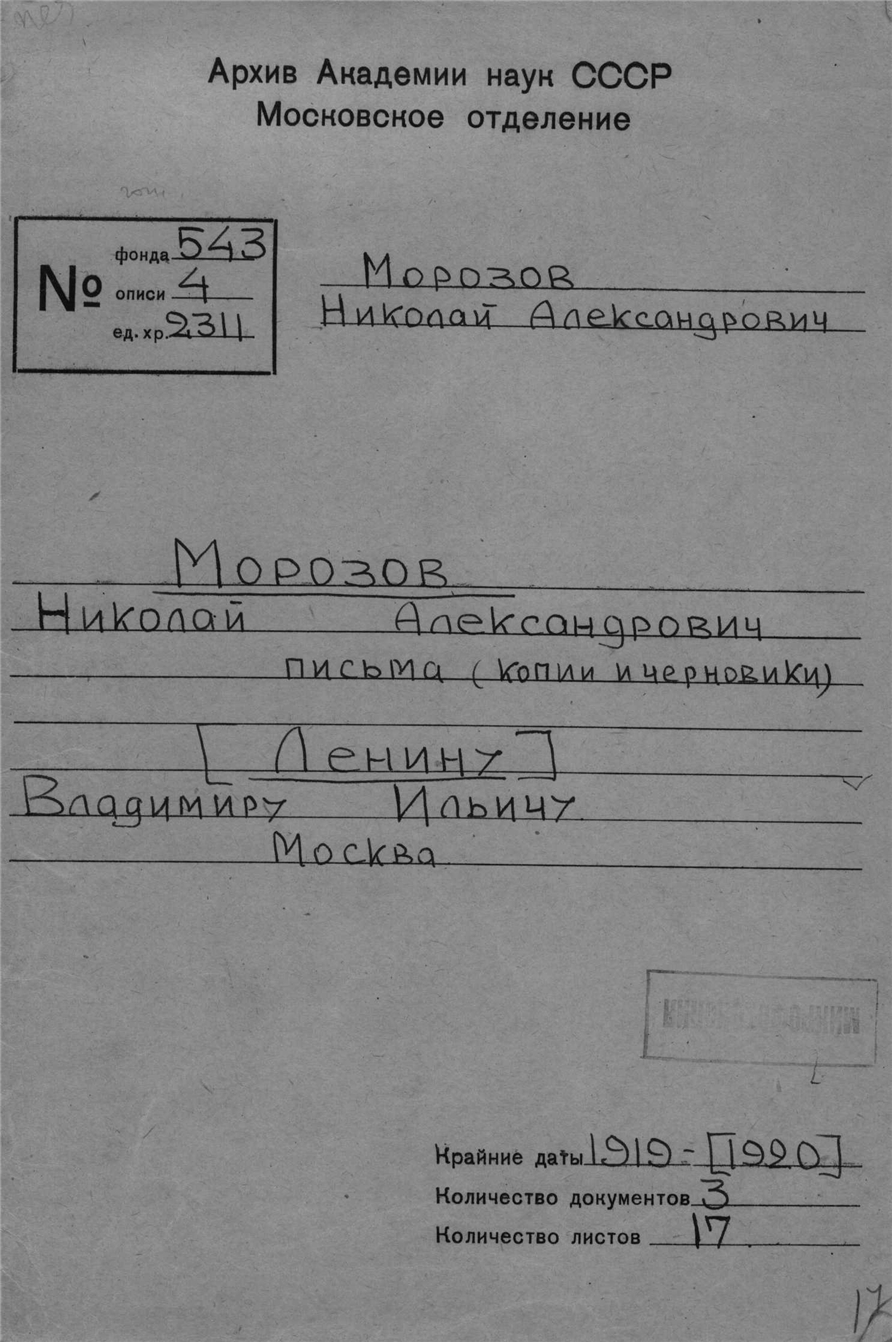 Архив Академии наук СССР
Московское отделение
№
фонда 543
описи 4
ед. хр. 2311
Морозов
Николай Александрович
Морозов
Николай Александрович
письма (копии и черновики)
[Ленину]
Владимиру Ильичу
Москва
Крайние даты 1919-[1920]
Количество документов 3
Количество листов 17
17